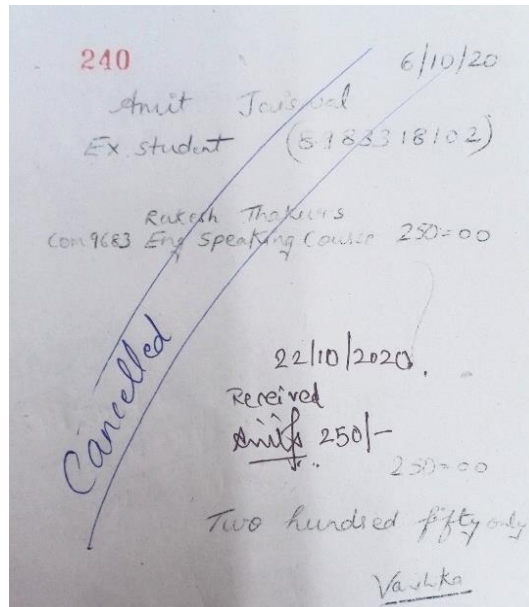 240
6/10/20
Amit Jaiswal
Ex. student (8983318102)
Rakesh Thakur's
Con 9683 Eng Speaking Course 250=00
Cancelled
22/10/2020.
Received
Amit 250/-
250=00
Two hundred fifty only